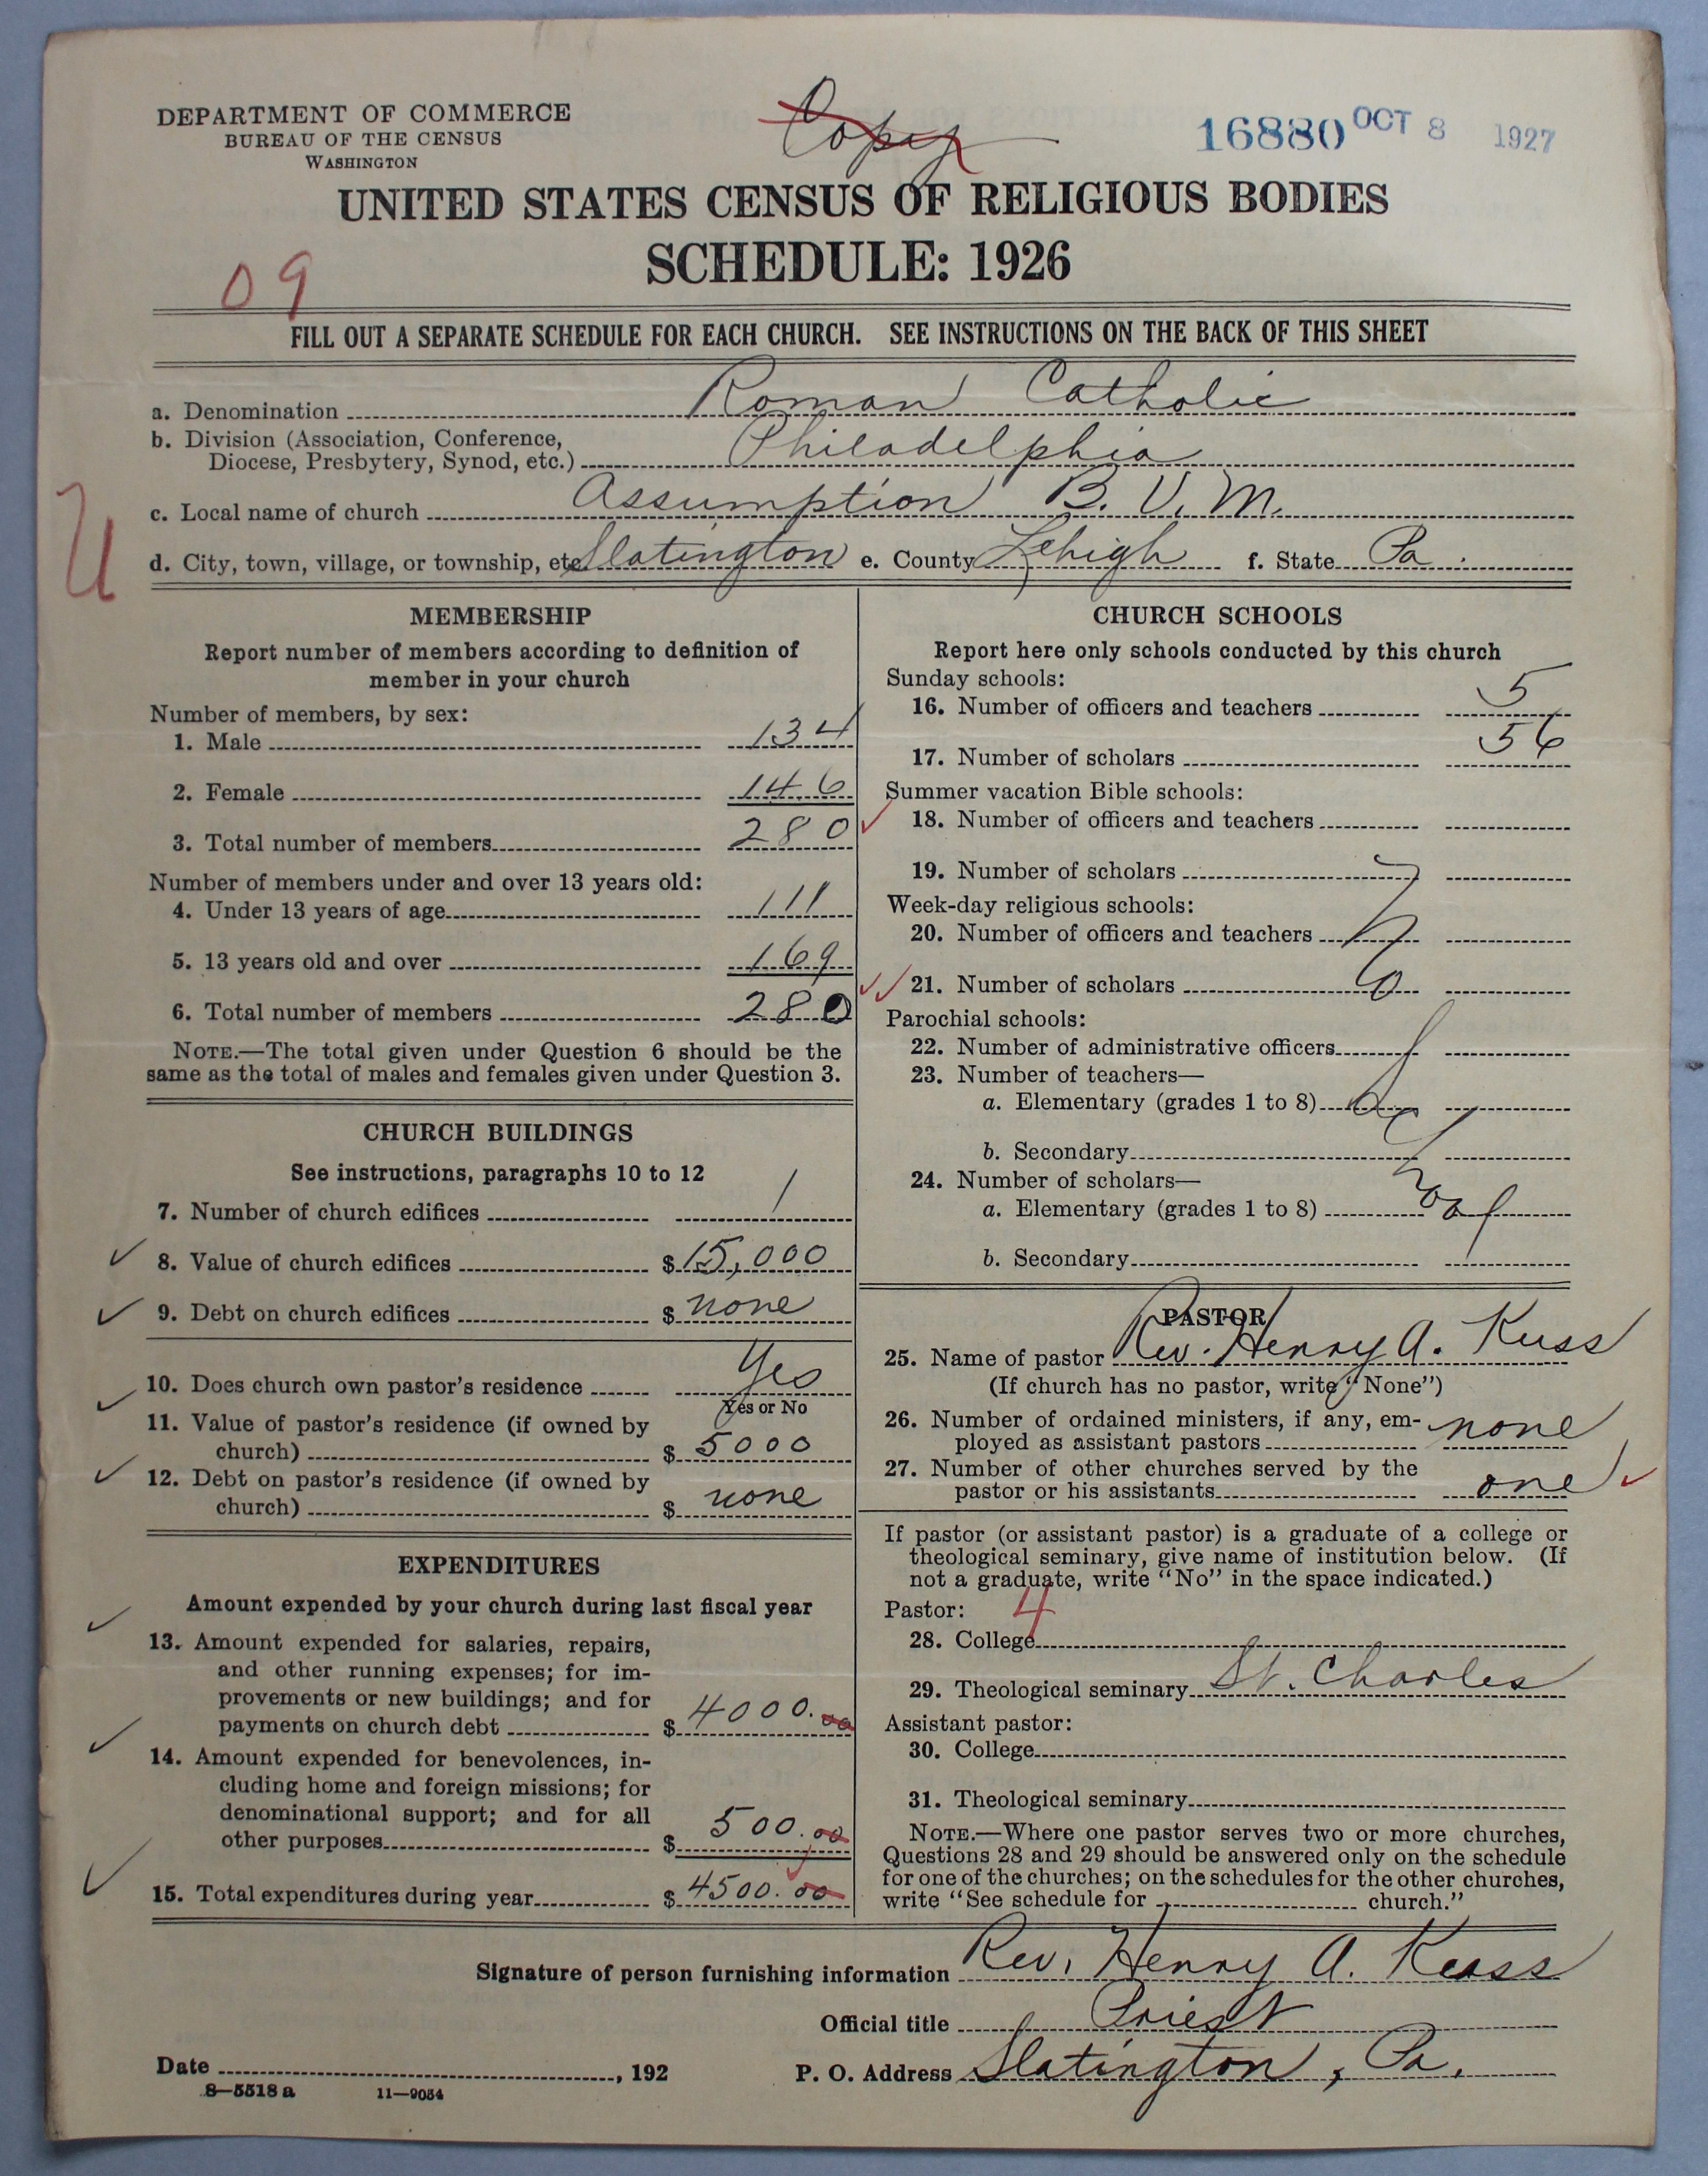 DEPARTMENT OF COMMERCE
BUREAU OF THE CENSUS
WASHINGTON
Copy
16880 OCT 8 1927
UNITED STATES CENSUS OF RELIGIOUS BODIES
SCHEDULE: 1926
09
FILL OUT A SEPARATE SCHEDULE FOR EACH CHURCH. SEE INSTRUCTIONS ON THE BACK OF THIS SHEET
a. Denomination Roman Catholic
b. Division (Association, Conference,
Diocese, Presbytery, Synod, etc.) Philadelphia
c. Local name of church Assumption B. V. M.
U
d. City, town, village, or township, etc. Slatington e. County Lehigh f. State Pa.
MEMBERSHIP
Report number of members according to definition of
member in your church
Number of members, by sex:
1. Male 134
2. Female 146
3. Total number of members 280
Number of members under and over 13 years old:
4. Under 13 years of age 111
5. 13 years old and over 169
6. Total number of members 280
NOTE.—The total given under Question 6 should be the
same as the total of males and females given under Question 3.
CHURCH BUILDINGS
See instructions, paragraphs 10 to 12
7. Number of church edifices 1
8. Value of church edifices $15,000
9. Debt on church edifices $ none
10. Does church own pastor's residence Yes
Yes or No
11. Value of pastor's residence (if owned by
church) $ 5000
12. Debt on pastor's residence (if owned by
church) $ none
EXPENDITURES
Amount expended by your church during last fiscal year
13. Amount expended for salaries, repairs,
and other running expenses; for im-
provements or new buildings; and for
payments on church debt $ 4000.00
14. Amount expended for benevolences, in-
cluding home and foreign missions; for
denominational support; and for all
other purposes $ 500.00
15. Total expenditures during year $ 4500.00
CHURCH SCHOOLS
Report here only schools conducted by this church
Sunday schools:
16. Number of officers and teachers 5
17. Number of scholars 56
Summer vacation Bible schools:
18. Number of officers and teachers
19. Number of scholars
Week-day religious schools:
20. Number of officers and teachers
21. Number of scholars
Parochial schools:
22. Number of administrative officers
23. Number of teachers—
a. Elementary (grades 1 to 8)
b. Secondary
24. Number of scholars—
a. Elementary (grades 1 to 8)
b. Secondary
PASTOR
25. Name of pastor Rev. Henry A. Kuss
(If church has no pastor, write "None")
26. Number of ordained ministers, if any, em-
ployed as assistant pastors none
27. Number of other churches served by the
pastor or his assistants one
If pastor (or assistant pastor) is a graduate of a college or
theological seminary, give name of institution below. (If
not a graduate, write "No" in the space indicated.)
Pastor: 4
28. College
29. Theological seminary St. Charles
Assistant pastor:
30. College
31. Theological seminary
NOTE.—Where one pastor serves two or more churches,
Questions 28 and 29 should be answered only on the schedule
for one of the churches; on the schedules for the other churches,
write "See schedule for church."
Signature of person furnishing information Rev. Henry A. Kuss
Official title Priest
Date , 192 P. O. Address Slatington, Pa.
8—5518 a 11—9054